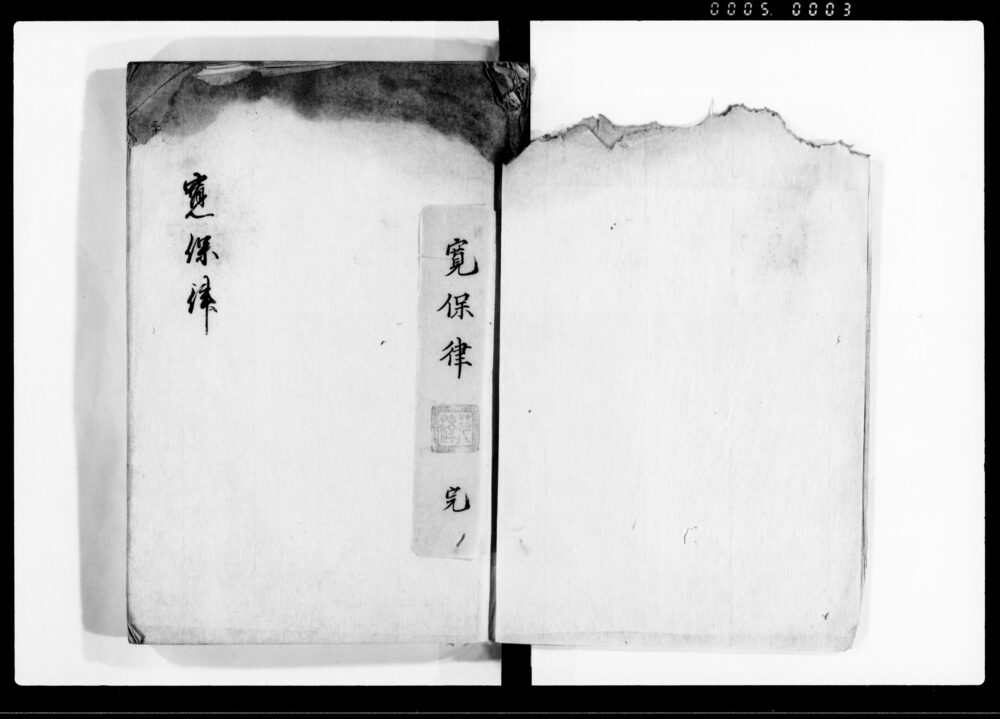 0005 0003
寛保律
完
寛保律